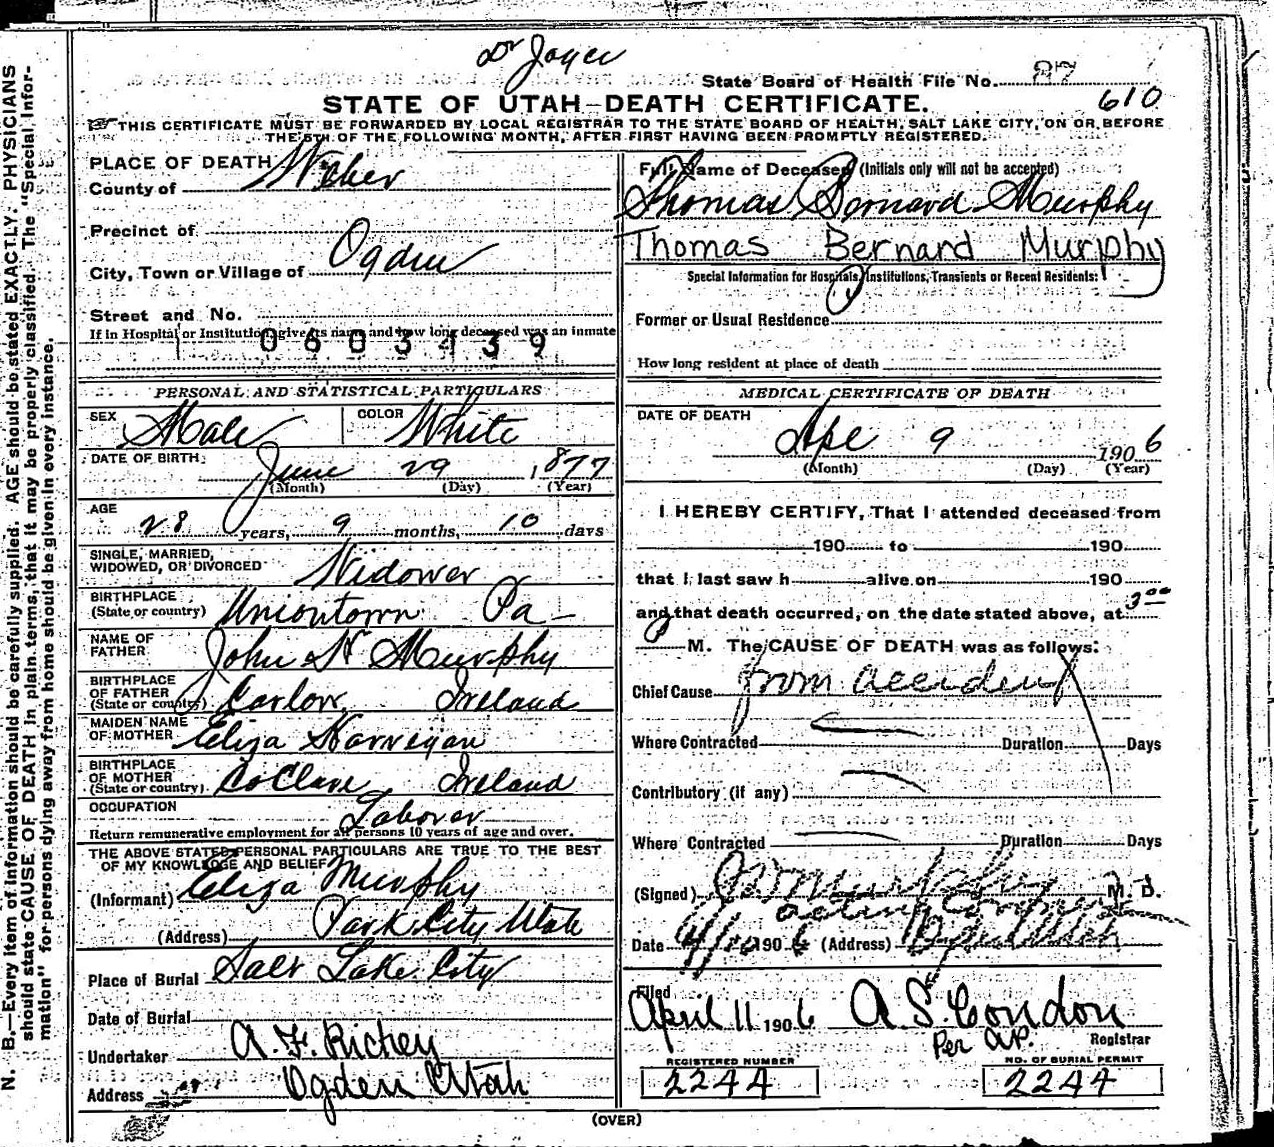 Dr Joyce
State Board of Health File No. 87
610
STATE OF UTAH—DEATH CERTIFICATE.
THIS CERTIFICATE MUST BE FORWARDED BY LOCAL REGISTRAR TO THE STATE BOARD OF HEALTH, SALT LAKE CITY, ON OR BEFORE
THE 5TH OF THE FOLLOWING MONTH, AFTER FIRST HAVING BEEN PROMPTLY REGISTERED.
PLACE OF DEATH
County of Weber
Precinct of
City, Town or Village of Ogden
Street and No.
If in Hospital or Institution, give its name and how long deceased was an inmate
0603439
PERSONAL AND STATISTICAL PARTICULARS
SEX Male COLOR White
DATE OF BIRTH June 29 1877
(Month) (Day) (Year)
AGE
28 years, 9 months, 10 days
SINGLE, MARRIED,
WIDOWED, OR DIVORCED Widower
BIRTHPLACE
(State or country) Uniontown Pa
NAME OF
FATHER John H Murphy
BIRTHPLACE
OF FATHER
(State or country) Carlow, Ireland
MAIDEN NAME
OF MOTHER Eliza Karnegan
BIRTHPLACE
OF MOTHER
(State or country) Co Clare Ireland
OCCUPATION Laborer
Return remunerative employment for all persons 10 years of age and over.
THE ABOVE STATED PERSONAL PARTICULARS ARE TRUE TO THE BEST
OF MY KNOWLEDGE AND BELIEF
(Informant) Eliza Murphy
(Address) Park City Utah
Place of Burial Salt Lake City
Date of Burial
Undertaker A. F. Richey
Address Ogden Utah
Full Name of Deceased (Initials only will not be accepted)
Thomas Bernard Murphy
Thomas Bernard Murphy
Special Information for Hospitals, Institutions, Transients or Recent Residents:
Former or Usual Residence
How long resident at place of death
MEDICAL CERTIFICATE OF DEATH
DATE OF DEATH
Apl 9 1906
(Month) (Day) (Year)
I HEREBY CERTIFY, That I attended deceased from
190 to 190
that I last saw h alive on 190
and that death occurred, on the date stated above, at 3 00
M. The CAUSE OF DEATH was as follows:
Chief Cause from accident
Where Contracted Duration Days
Contributory (if any)
Where Contracted Duration Days
(Signed) Murphy M. D.
acting Coroner
Date 4/10 1906 (Address) Ogden Utah
Filed
April 11 1906 A. S. Condon
Per A.P. Registrar
REGISTERED NUMBER
2244
NO. OF BURIAL PERMIT
2244
(OVER)
N. B.—Every item of information should be carefully supplied. AGE should be stated EXACTLY. PHYSICIANS
should state CAUSE OF DEATH in plain terms, that it may be properly classified. The "Special Infor-
mation" for persons dying away from home should be given in every instance.